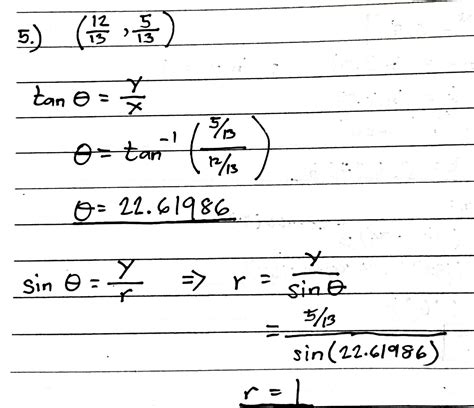 5.) (12/13, 5/13)
tan θ = y/x
θ = tan⁻¹ ((5/13)/(12/13))
θ = 22.61986
sin θ = y/r ⇒ r = y/sin θ
= (5/13)/sin(22.61986)
r = 1